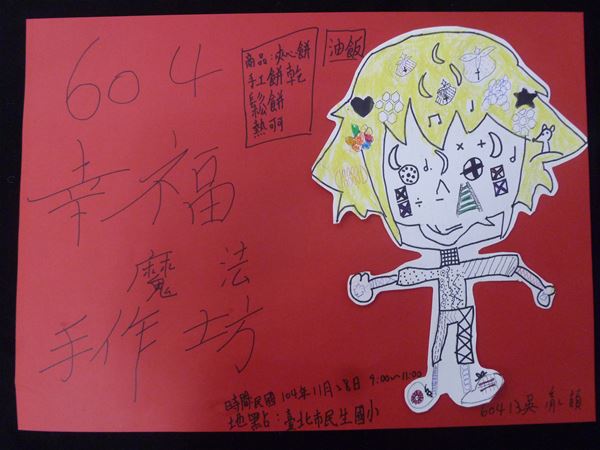 604
幸福
魔法
手作坊
商品:夾心餅
手工餅乾
鬆餅
熱可
油飯
時間民國104年11月28日 9:00~11:00
地點:臺北市民生國小
60413吳